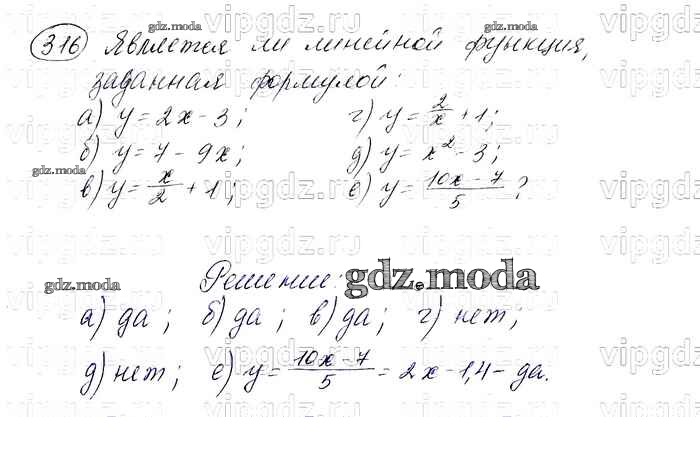 316 Является ли линейной функция,
заданная формулой:
а) y = 2x - 3; г) y = 2/x + 1;
б) y = 7 - 9x; д) y = x² - 3;
в) y = x/2 + 1; е) y = (10x - 7)/5 ?
Решение:
а) да; б) да; в) да; г) нет;
д) нет; е) y = (10x - 7)/5 = 2x - 1,4 - да.
gdz.moda
gdz.moda
gdz.moda
gdz.moda
gdz.moda
vipgdz.ru